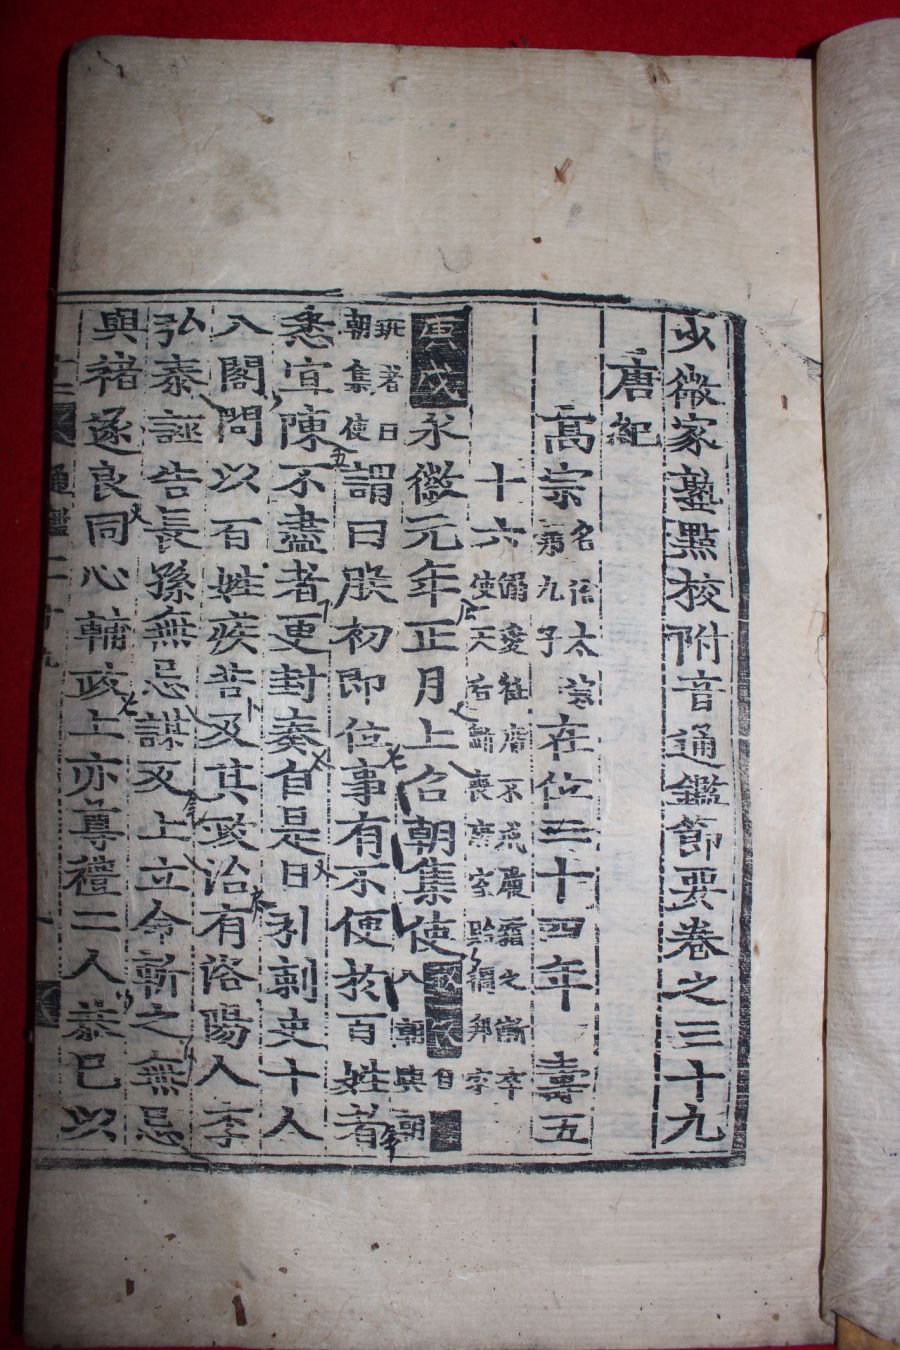 少微家塾點校附音通鑑節要卷之三十九
唐紀
高宗 名治太宗第九子 在位三十四年 壽五
十六 溺愛衽席不戒履霜之漸卒使天后斵喪唐室黜移舉家
庚戌 永徽元年正月上召朝集使 入朝與朝
班者曰朝集使 謂曰朕初即位事有不便於百姓者
悉宜陳不盡者更封奏自是日引刺史十人
入閣問以百姓疾苦及其政治有洛陽人李
弘泰誣告長孫無忌謀反上立命斬之無忌
與褚遂良同心輔政上亦尊禮二人恭己以